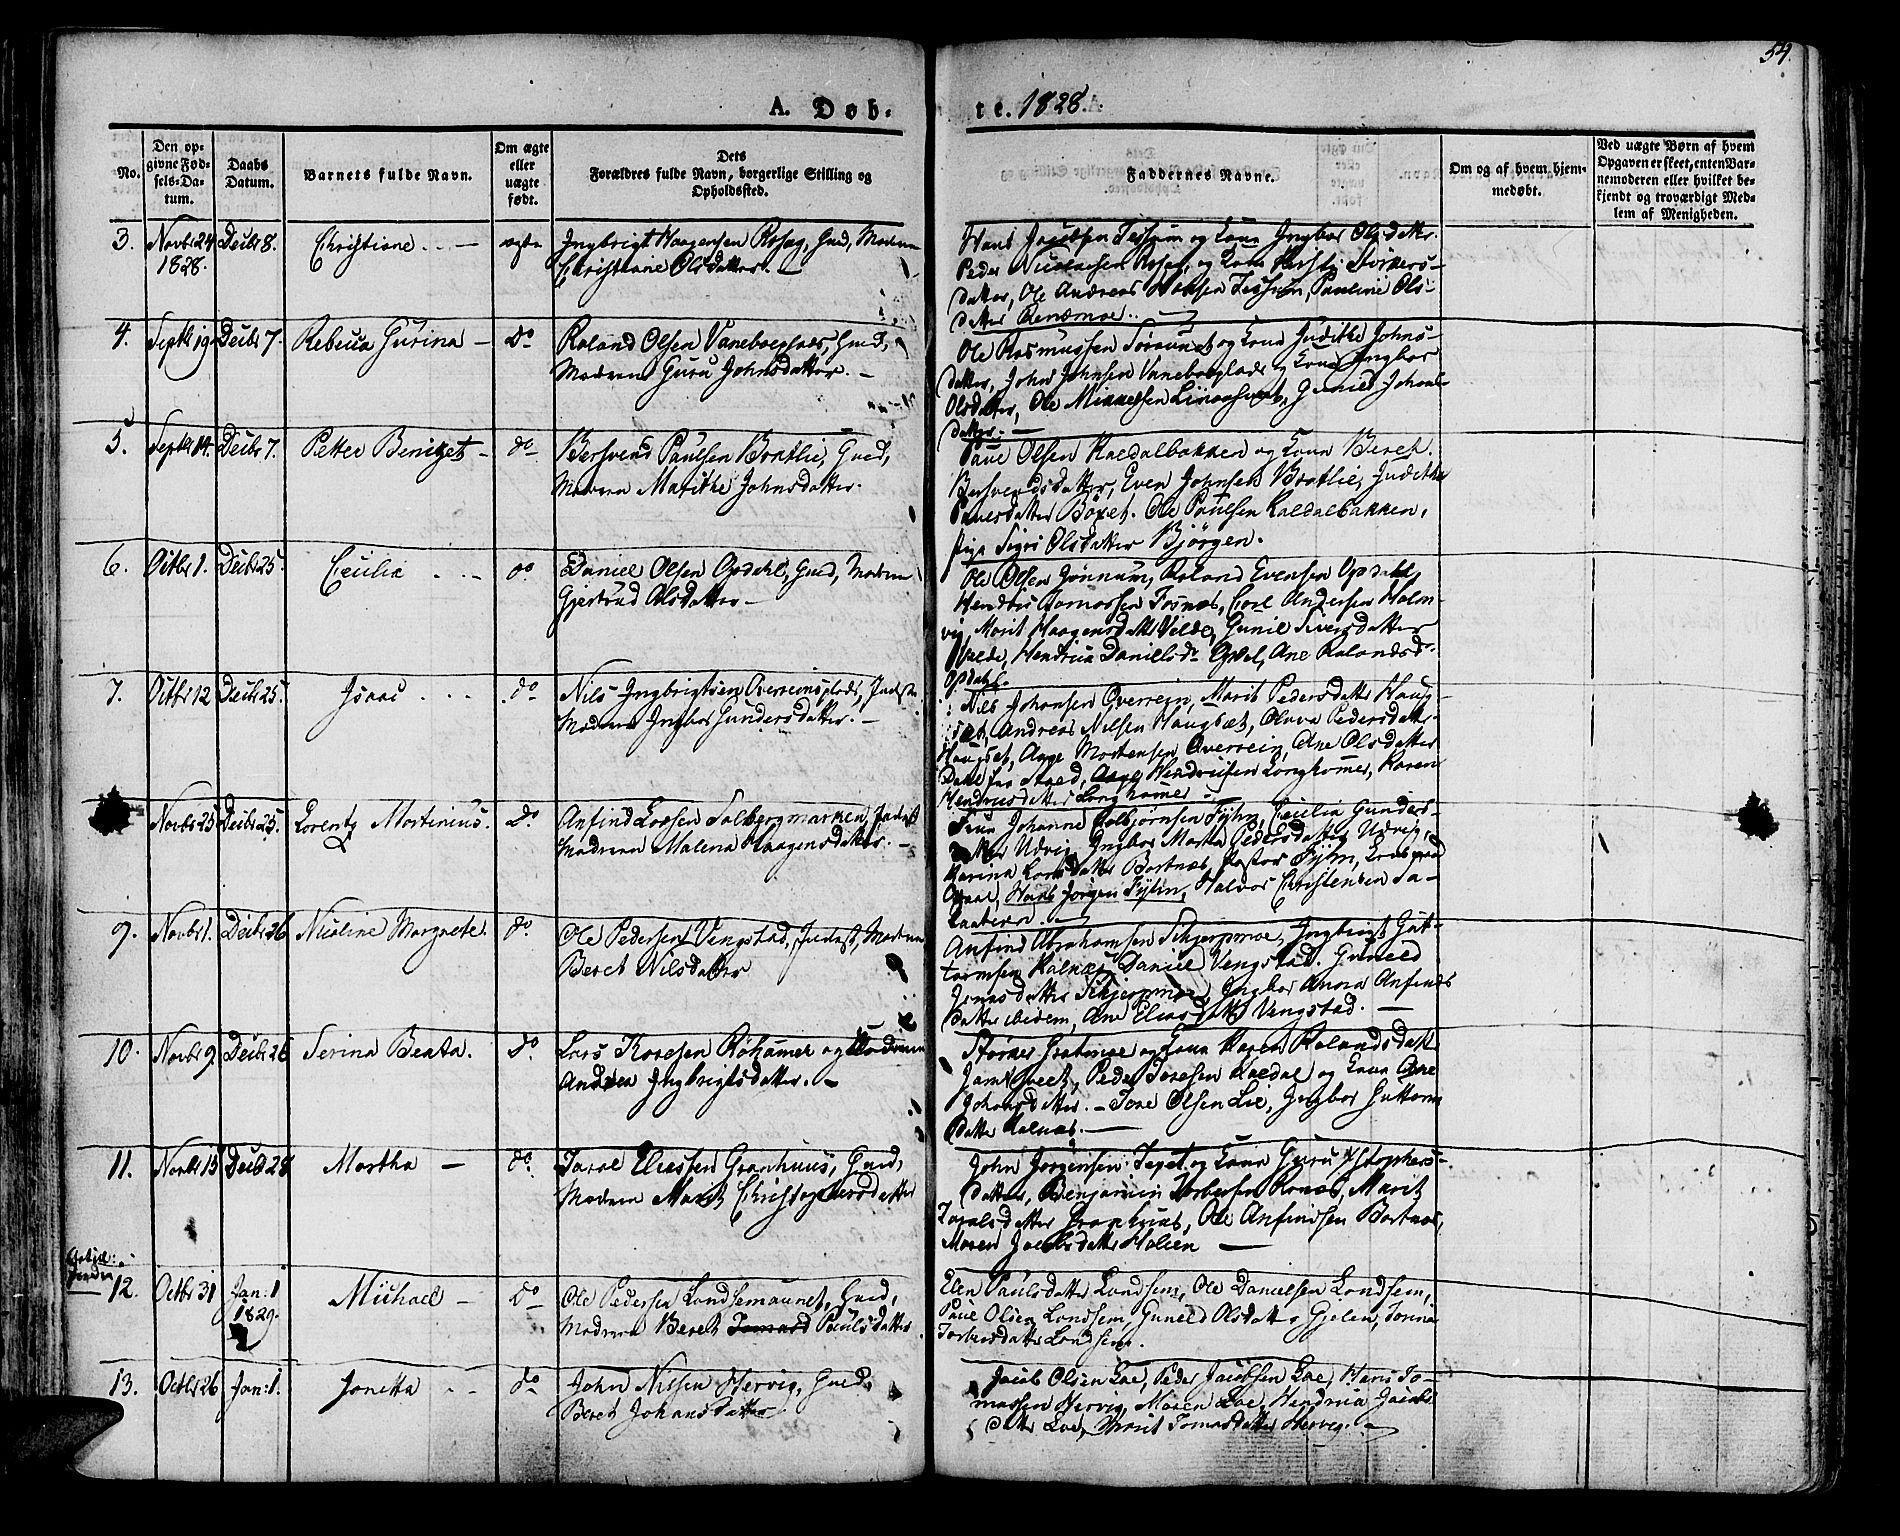 54.
A. Døb-
te. 1828.
No.
Den op-
givne Fød-
sels-Da-
tum.
Daabs
Datum.
Barnets fulde Navn.
Om ægte
eller
uægte
født.
Dets
Forældres fulde Navn, borgerlige Stilling og
Opholdsted.
Faddernes Navne.
Om og af hvem hjem-
medøbt.
Ved uægte Børn af hvem
Opgaven er skeet, enten Bar-
nemoderen eller hvilket be-
kjendt og troværdigt Med-
lem af Menigheden.
3. Novbr 24 Decbr 8. Christiane ægte Ingbrigt Haagensen Rosag, Gmd, Modren
1828. Christiane Olsdatter.
Hans Jacobsen Tessum og Kona Ingbor Olsdattr.
Peder Nicolaisen Rosag, og Kona Kersti Storkers-
datter, Ole Andreas Hansen Tessum, Pauline Ols-
datter
4. Septbr 19 Decbr 7. Rebecca Gurina do Roland Olsen Vaneboeplads, Gmd,
Modren Guru Johnsdatter.
Ole Rasmussen og Kona Judithe Johns-
datter, John Johnsen Vaneboeplads og Kona Ingbor
Olsdatter, Ole Mikkelsen Gunild Johns-
datter.
5. Septbr 14. Decbr 7. Petter Bernitzet do Bersvend Paulsen Bratlie, Gmd,
Modren Marithe Johnsdatter.
Paul Olsen Kaldalbakken og Kona Beret
Bersvendsdatter, Even Johnsen Bratlie, Judithe
Paulsdatter Ole Paulsen Kaldalbakken,
Pige Sigri Olsdatter Bjørgen.
6. Octbr 1. Decbr 25. Cecilia do Daniel Olsen Opdahl, Gmd, Modren
Gjertrud Olsdatter
Ole Olsen Jønnum, Roland Evensen Opdahl,
Hendric Tomassen Fosnæs, Carl Andersen Holm-
vig, Marit Haagensdattr Velde, Gunil Siversdatter
Velde, Hendrica Danielsdr Opdal, Ane Rolandsdr
Opdahl.
7. Octbr 12 Decbr 25. Isaac do Nils Ingbrigtsen Overreinsplads, Inderst
Modren Ingbor Gundersdatter.
Nils Johansen Overrein, Marit Pedersdatter Haug-
sæt, Andreas Nilsen Haugsæt, Oluva Pedersdattr
Haugset, Aage Mortensen Overrein, Ane Olsdatter
Aage Hendricsen Longhamer, Karen
Hendricsdatter Longhamer
Novbr 25 Decbr 25. Lorentz Mortinius. do Anfind Larsen Solbergmarken, Inderst
Modren Malena Haagensdatter.
Frue Johanne Colbjørnsen Tyhn, Cecilia Gunders-
datter Udvig, Ingbor Martha Pedersdatter Udvig,
Karina Larsdatter Bartnæs, Pastor Tyhn,
Hans Jørgen Tyhn, Halvor Christensen
9. Novbr 1. Decbr 26 Nicoline Margrete. do Ole Pedersen Vengstad, Inderst, Modren
Beret Nilsdatter
Anfind Abrahamsen Skjerpmoe, Ingbrigt Gut-
tormsen Kalnæs, Daniel Vengstad. Guneld
Jonasdatter Skjerpmoe, Ingbor Anna Anfinds-
datter ibidem, Ane Eliasdattr Vengstad.
10. Novbr 9. Decbr 26 Serina Beata. do Lars Røhamer og Modren
Andrea Ingbrigtsdatter.
Storker Gratmoe og Kona Karen Rolandsdatt
Peder Toresen Kaldal og Kona Ane
Johansdatter. Tore Olsen Lie, Ingbor Guttorms-
datter Kalnæs.
11. Novbr 15 Decbr 28 Martha do Taral Eliassen Granhuus, Gmd,
Modren Marit Christophersdatter
John Jørgensen og Kona Guru Xstophers-
datter, Benjamin Ronæs, Marit
Taralsdatter Granhuus, Ole Anfindsen Bartnæs,
Maren Jacobsdattr Holien
12. Octbr 31 Jan: 1 Michael do Ole Pedersen Londsemaunet, Gmd,
1829. Modren Beret Tomasd Paulsdatter.
Elen Paulsdatter Londsem, Ole Danielsen Londsem,
Paul Olsen Londsem, Guneld Olsdatter Gjelen,
Londsem.
13. Octbr 26 Jan: 1. Jonetta do John Nilsen Hervig, Gmd,
Beret Johansdatter
Jacob Olsen Loe, Peder Jacobsen Loe, Hans To-
massen Hervig, Maren Loe, Hendrica Jacobs-
datter Loe, Marit Tomasdatter Hervig.